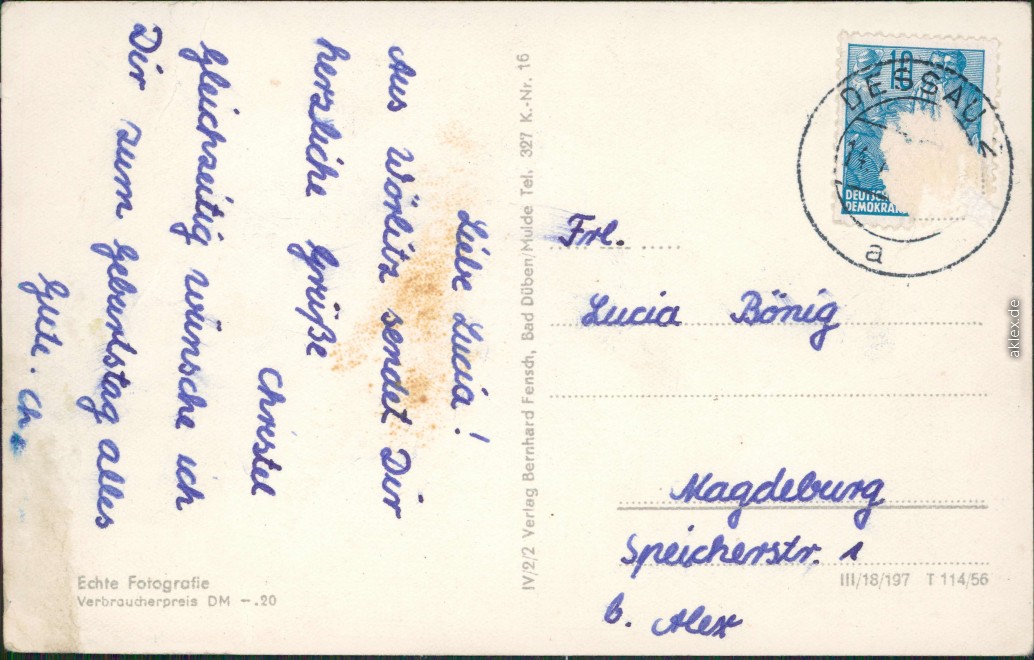 Liebe Lucia!
Aus Wörlitz sendet Dir
herzliche Grüße
Christel
Gleichzeitig wünsche ich
Dir zum Geburtstag alles
Gute. Ch.
Echte Fotografie
Verbraucherpreis DM -.20
IV/2/2 Verlag Bernhard Fensch, Bad Düben/Mulde Tel. 327 K.-Nr. 16
10
DEUTSCH
DEMOKRA
DESSAU
14.
a
Frl.
Lucia Bönig
Magdeburg
Speicherstr. 1
b. Alex
III/18/197 T 114/56
aklex.de